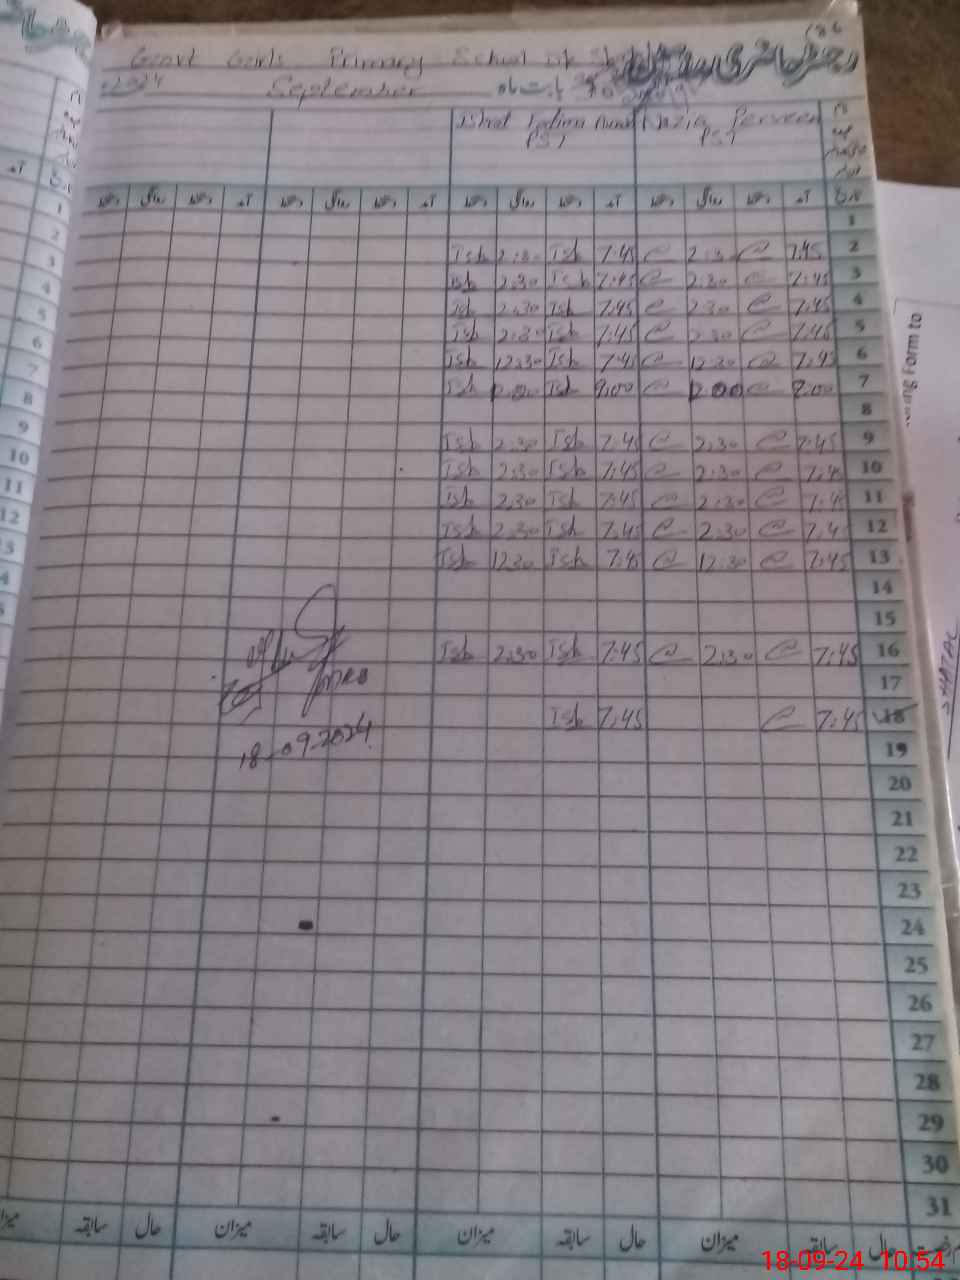 Govt Girls Primary School
رجسٹر حاضری
2024 September بابت ماہ
Nazia Perveen
PST PST
آمد دستخط روانگی دستخط آمد دستخط روانگی دستخط آمد دستخط روانگی دستخط آمد دستخط روانگی دستخط
1
2 7:45 @ 2:30 @ 7:45 Ish 2:30 Ish
3 7:45 @ 2:30 @ 7:45 Ish 2:30 Ish
4 7:45 @ 2:30 @ 7:45 Ish 2:30 Ish
5 7:45 @ 2:30 @ 7:45 Ish 2:30 Ish
6 7:45 @ 12:30 @ 7:45 Ish 12:30 Ish
7 9:00 @ 12:00 @ 9:00 Ish 12:00 Ish
8
9 7:45 @ 2:30 @ 7:45 Ish 2:30 Ish
10 7:45 @ 2:30 @ 7:45 Ish 2:30 Ish
11 7:45 @ 2:30 @ 7:45 Ish 2:30 Ish
12 7:45 @ 2:30 @ 7:45 Ish 2:30 Ish
13 7:45 @ 12:30 @ 7:45 Ish 12:30 Ish
14
15
16 7:45 @ 2:30 @ 7:45 Ish 2:30 Ish
17
18 7:45 @ 7:45 Ish
18-09-2024
19
20
21
22
23
24
25
26
27
28
29
30
31
حال سابقہ میزان حال سابقہ میزان حال سابقہ میزان حال سابقہ
18-09-24 10:54